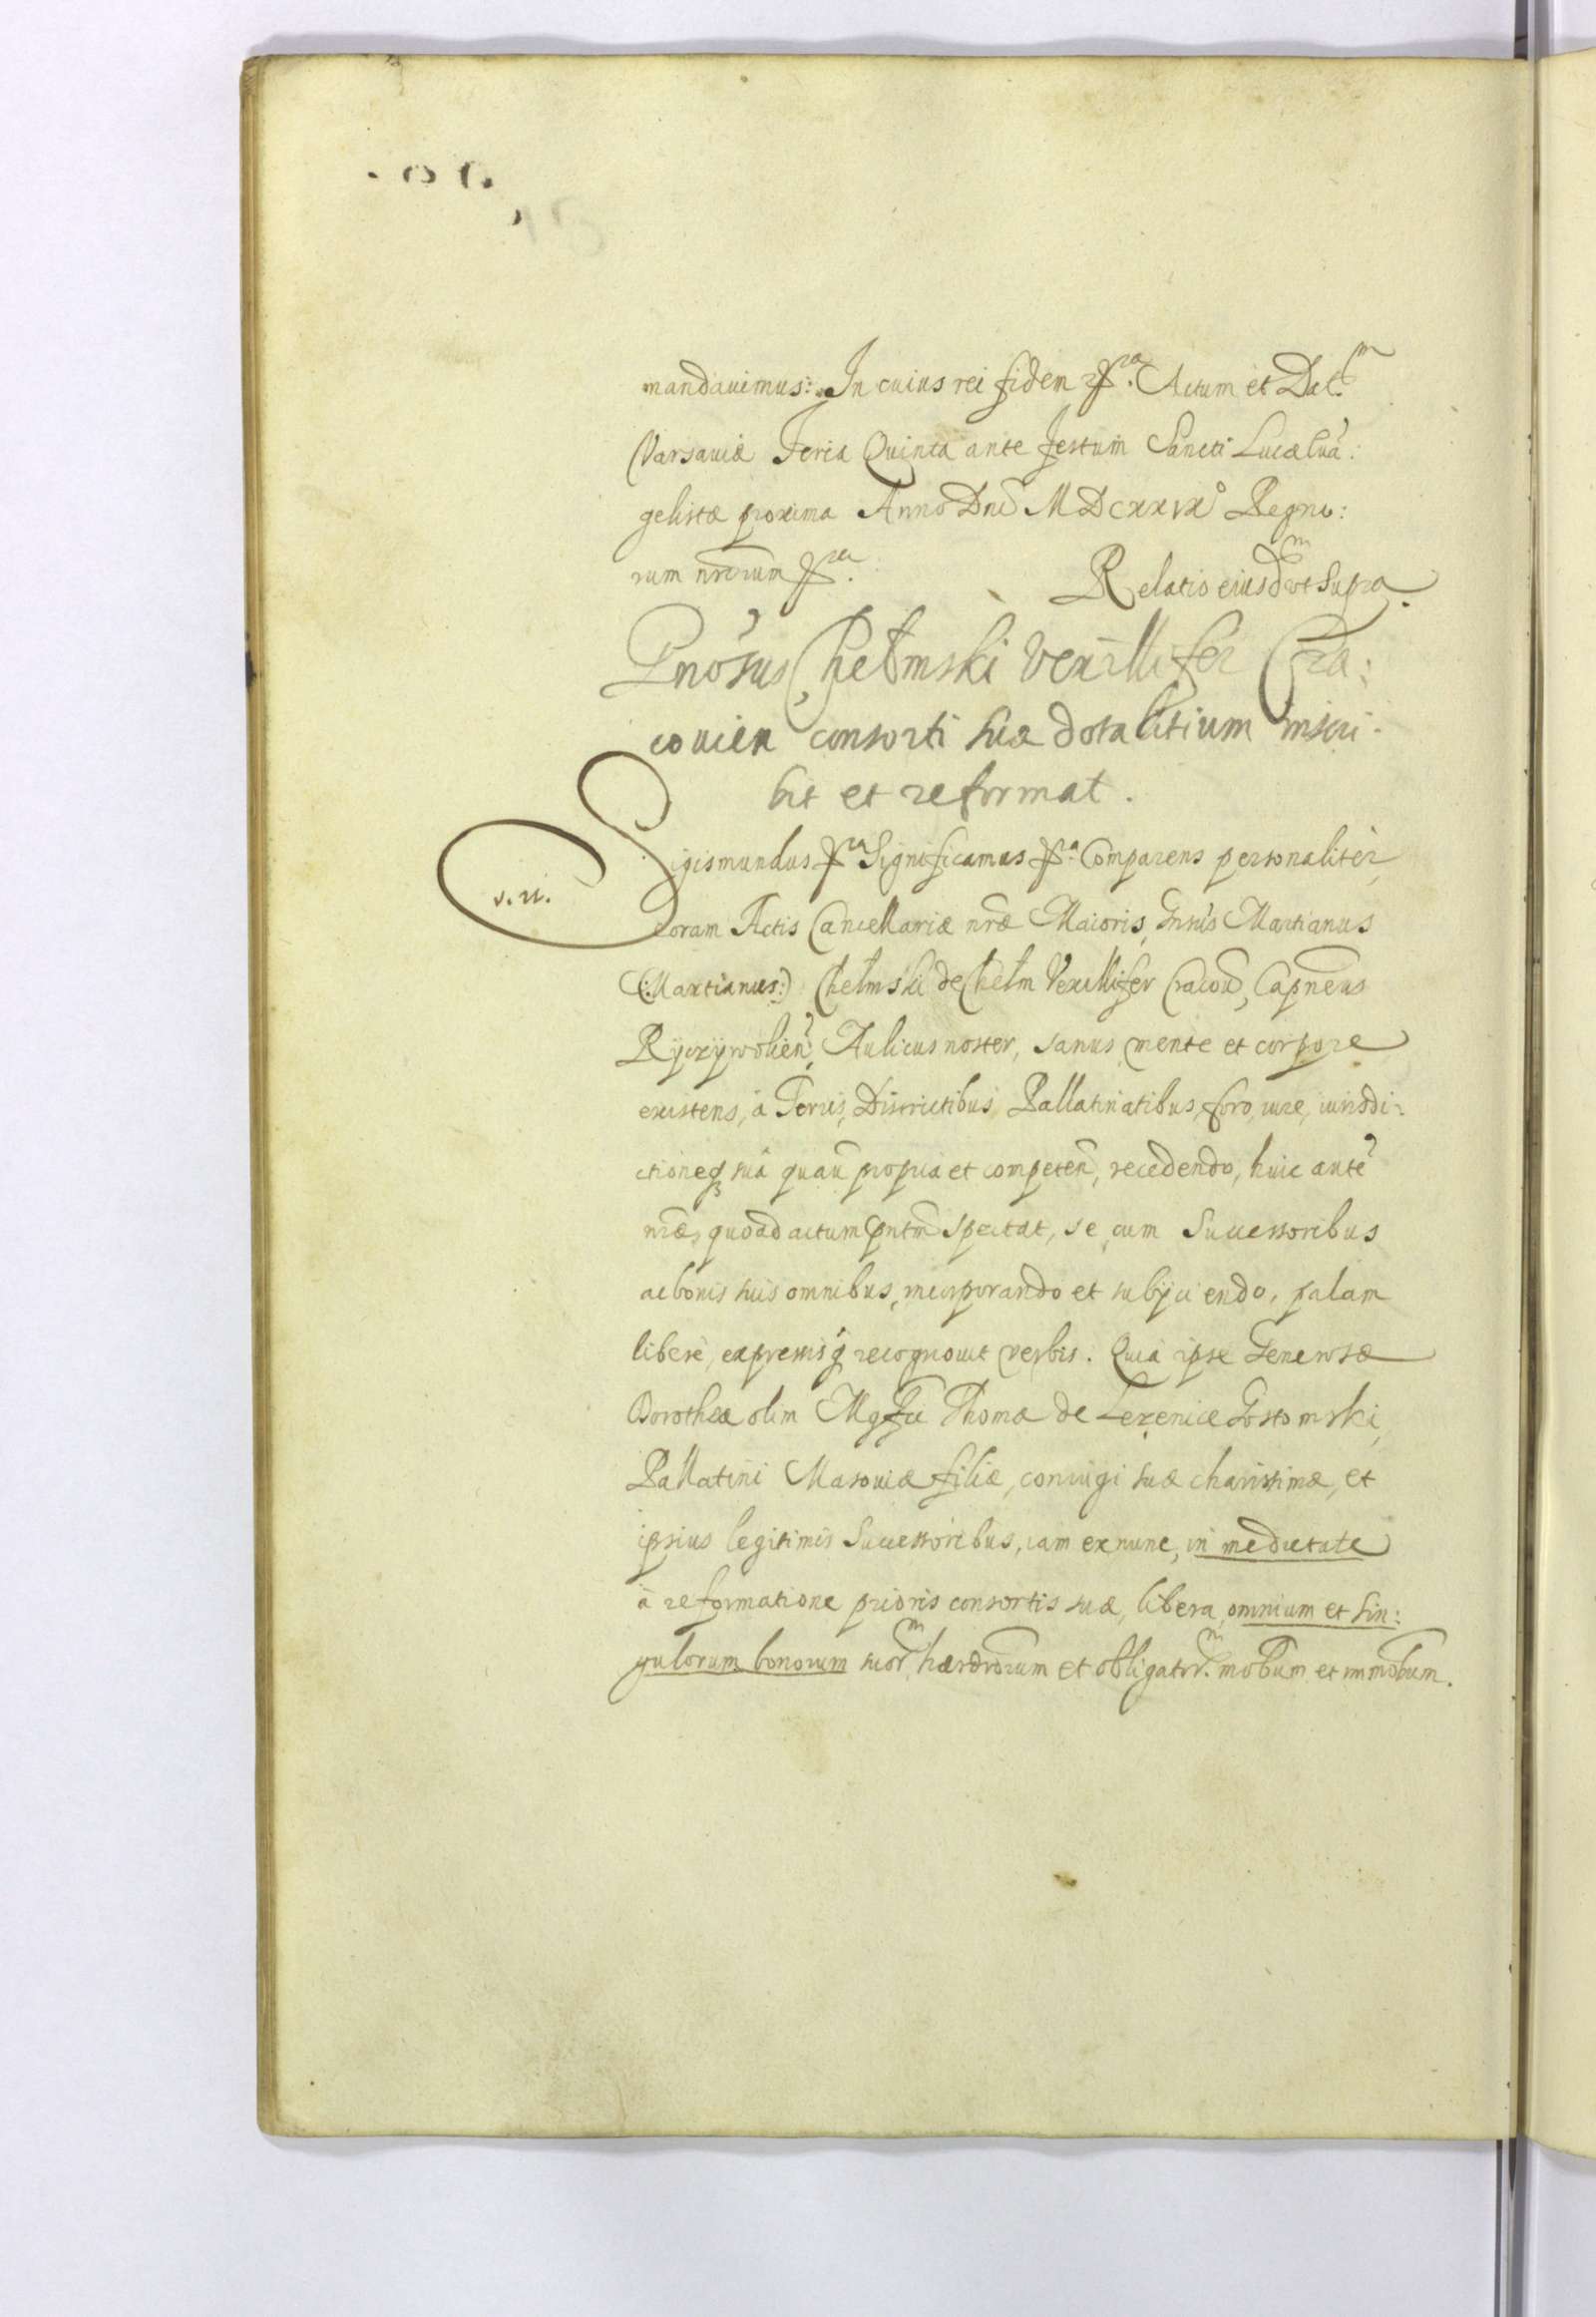 mandauimus: In cuius rei fidem &ra. Actum et Dat.m
Varsauiæ Feria Quinta ante festum Sancti Lucæ Eua:
gelistæ proxima Anno Dni M D C xx Regno:
rum nrorum &ra.
Relatio eiusdm vt Supra.
Gnosus Chełmski Vexillifer Cra:
couien consorti suæ dotalitium inscri:
bit et reformat.
Sigismundus &ra Significamus &ra Comparens personaliter,
v. n.
coram Actis Cancellariæ nræ Maioris, Gnsus Martianus
(:Martianus:) Chełmski de Chełm Vexillifer Cracou, Capneus
Ryczywolien, Aulicus noster, sanus mente et corpore
existens, à Terris, Districtibus Pallatinatibus, foro, iure, iurisdi:
ctioneq sua quauis propria et competen, recedendo, huic aute
nræ, quoad actum pntm spectat, se cum Successoribus
ac bonis suis omnibus, incorporando et subijciendo, palam
libere, expressisq recognouit verbis. Quia ipse Generosæ
Dorotheæ olim Mgfci Thomæ de Lezenice Gostomski,
Pallatini Masouiæ filiæ, coniugi suæ charissimæ, et
ipsius legitimis Successoribus, iam ex nunc, in medietate
à reformatione prioris consortis suæ, libera, omnium et sin:
gulorum bonorum suorm, hærdrorum et obligatorm. mobium et immobium.